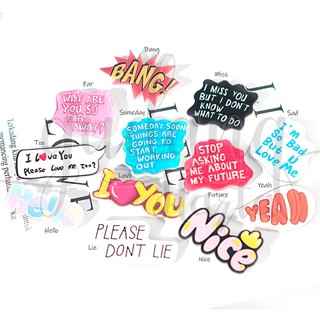 Bang
BANG!
Miss
I MISS YOU
BUT I DON'T
KNOW
WHAT TO DO
Far
WHY ARE
YOU SO
FAR
AWAY?
Someday
SOMEDAY SOON
THINGS ARE
GOING TO
START
WORKING
OUT
Sad
I'm
So Sad
But U
Love Me
Too
I LOVE YOU
Please Love me Too?
STOP
ASKING
ME ABOUT
MY
FUTURE
Future
Yeah
YEAH
Hello
Hello
I YOU
Lie
PLEASE
DONT LIE
Nice
Nice